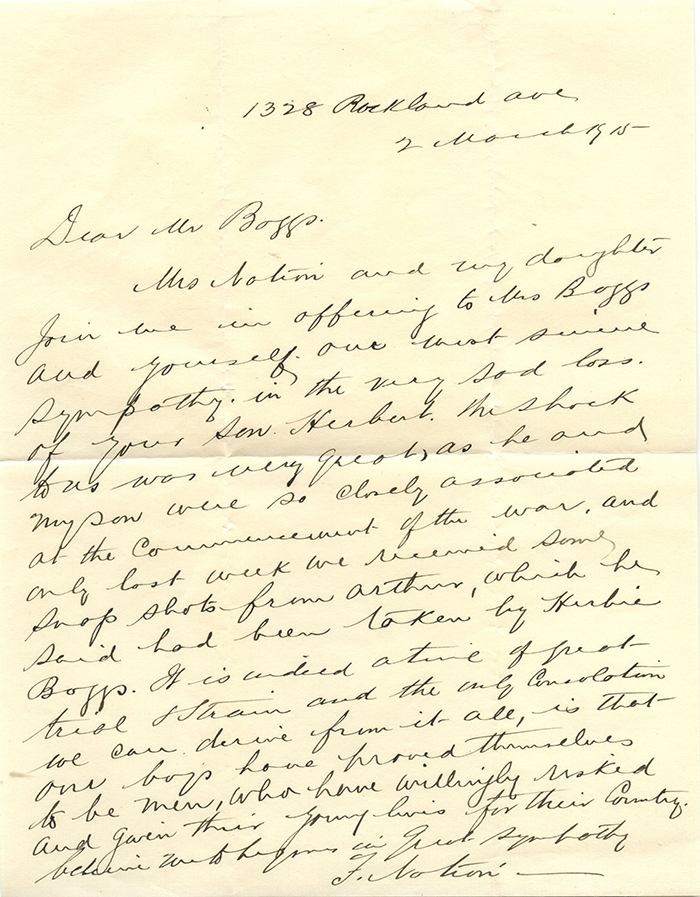 1328 Rockland Ave
2 March 1915
Dear Mr Boggs.
Mrs Nation and my daughter
Join me in offering to Mrs Boggs
and yourself. our most sincere
sympathy. in the very sad loss.
of your son. Herbert. The shock
to us was very great, as he and
my son were so closely associated
at the Commencement of the war, and
only last week we received some
snap shots from Arthur, which he
said had been taken by Herbie
Boggs. It is indeed a time of great
trial & Strain and the only Consolation
we can derive from it all, is that
our boys have proved themselves
to be men, who have willingly risked
and given their young lives for their Country.
believe me to be yours in great sympathy
F. Nation